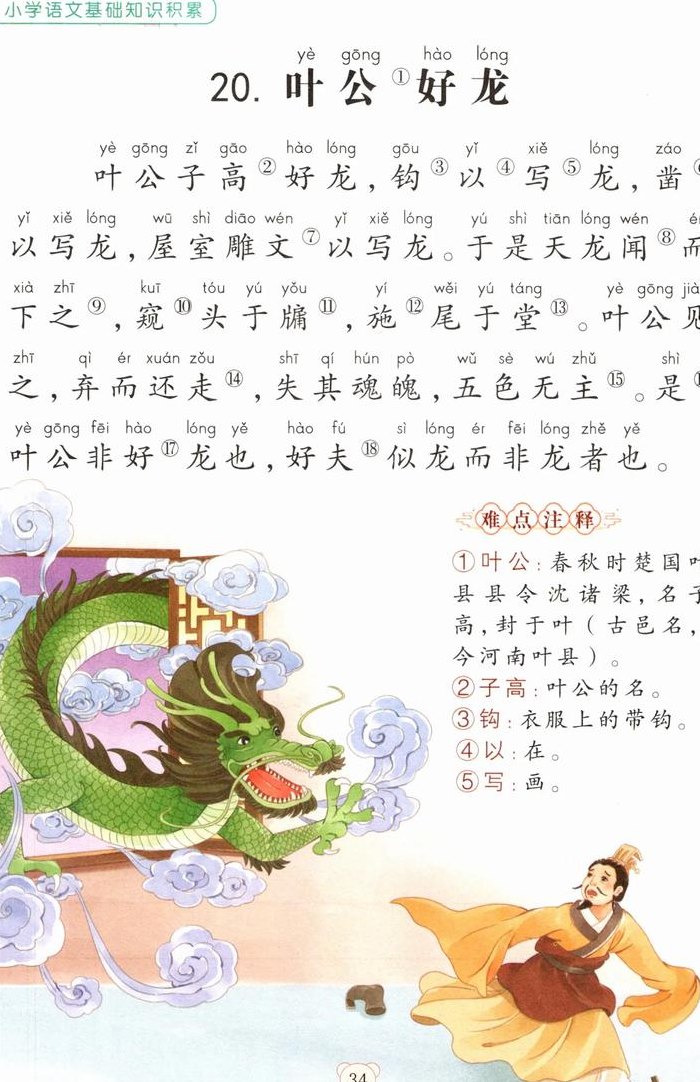 小学语文基础知识积累
yè gōng hào lóng
20. 叶公①好龙
yè gōng zǐ gāo hào lóng gōu yǐ xiě lóng záo
叶公子高②好龙，钩③以④写⑤龙，凿
yǐ xiě lóng wū shì diāo wén yǐ xiě lóng yú shì tiān lóng wén
以写龙，屋室雕文⑦以写龙。于是天龙闻⑧而
xià zhī kuī tóu yú yǒu yí wěi yú táng yè gōng jià
下之⑨，窥⑩头于牖⑪，施⑫尾于堂⑬。叶公见
zhī qì ér xuán zǒu shī qí hún pò wǔ sè wú zhǔ shì
之，弃而还走⑭，失其魂魄，五色无主⑮。是
yè gōng fēi hào lóng yě hào fú sì lóng ér fēi lóng zhě yě
叶公非好⑰龙也，好夫⑱似龙而非龙者也。
难点注释
①叶公：春秋时楚国叶
县县令沈诸梁，名子
高，封于叶（古邑名，
今河南叶县）。
②子高：叶公的名。
③钩：衣服上的带钩。
④以：在。
⑤写：画。
34